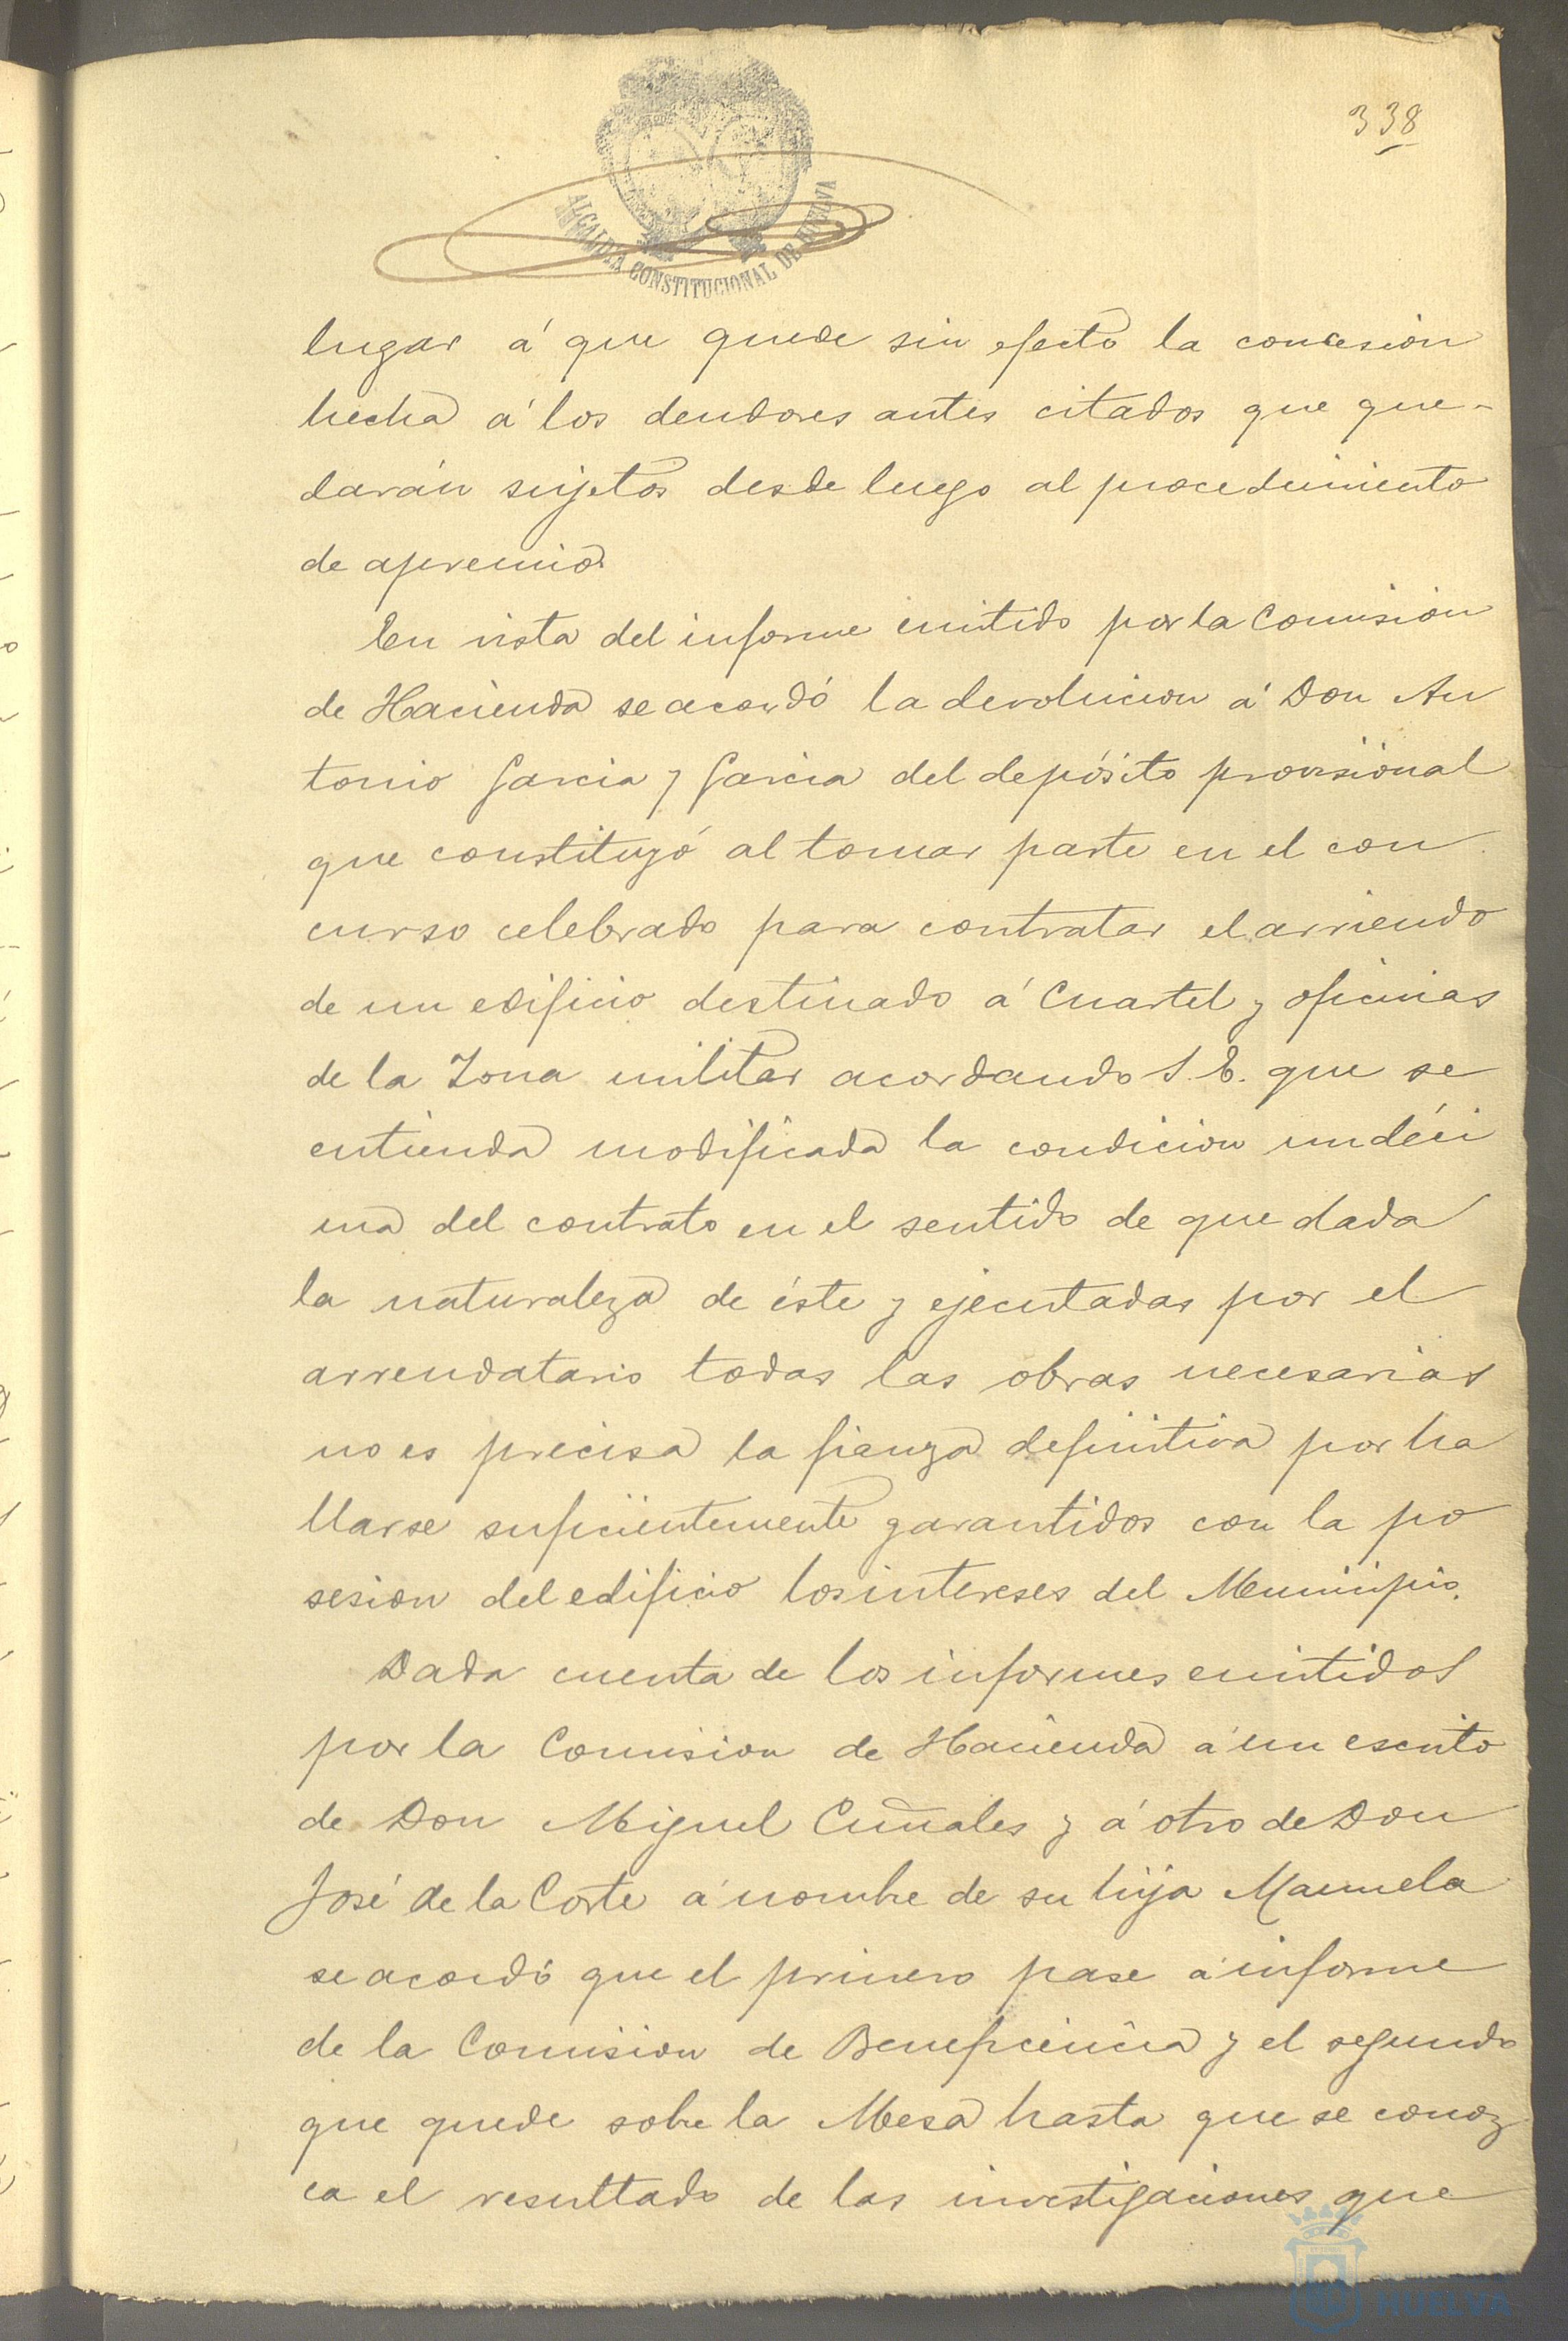 338
ALCALDÍA CONSTITUCIONAL DE HUELVA
lugar á que quede sin efecto la concesion
hecha á los deudores antes citados que que-
darán sujetos desde luego al procedimiento
de apremio
En vista del informe emitido por la Comision
de Hacienda se acordó la devolucion á Don An
tonio Garcia y Garcia del depósito provisional
que constituyó al tomar parte en el con
curso celebrado para contratar el arriendo
de un edificio destinado á Cuartel y oficinas
de la Zona militar acordando S.E. que se
entienda modificada la condicion undéci
ma del contrato en el sentido de que dada
la naturaleza de éste y ejecutadas por el
arrendatario todas las obras necesarias
no es precisa la fianza definitiva por ha
llarse suficientemente garantidos con la po
sesion del edificio los intereses del Municipio.
Dada cuenta de los informes emitidos
por la Comision de Hacienda á un escrito
de Don Miguel Cuñales y á otro de Don
José de la Corte á nombre de su hija Manuela
se acordó que el primero pase á informe
de la Comision de Beneficencia y el segundo
que quede sobre la Mesa hasta que se conoz
ca el resultado de las investigaciones que
HUELVA